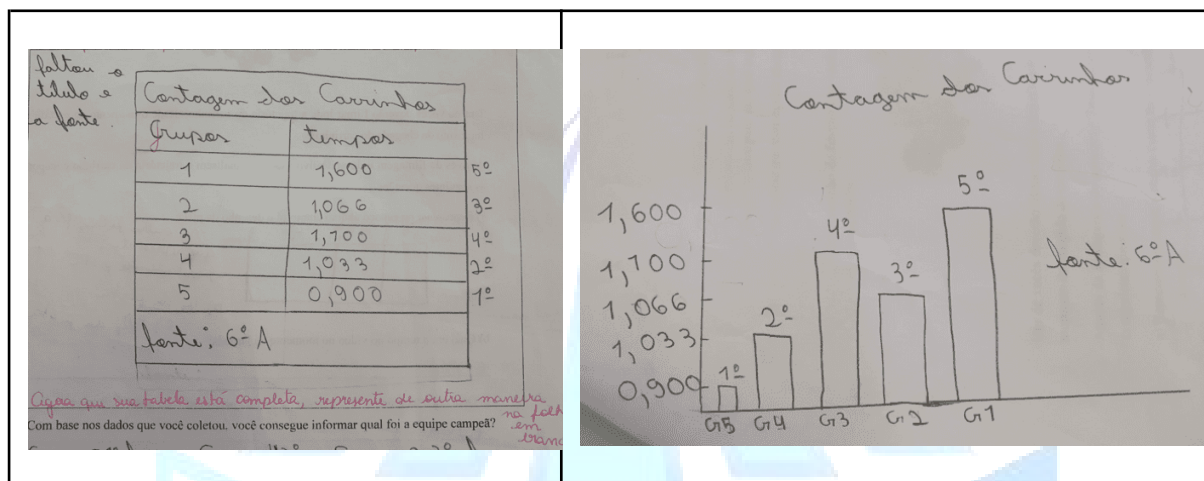 faltou o
título e
a fonte.
Contagem dos Carrinhos
Grupos tempos
1 1,600 5º
2 1,066 3º
3 1,100 4º
4 1,033 2º
5 0,900 1º
fonte: 6º A
Agora que sua tabela está completa, represente de outra maneira
na folha
em
branc
Com base nos dados que você coletou, você consegue informar qual foi a equipe campeã?
Contagem dos Carrinhos
5º
1,600
4º
1,100
fonte: 6º A
3º
1,066
2º
1,033
1º
0,900
G5 G4 G3 G2 G1